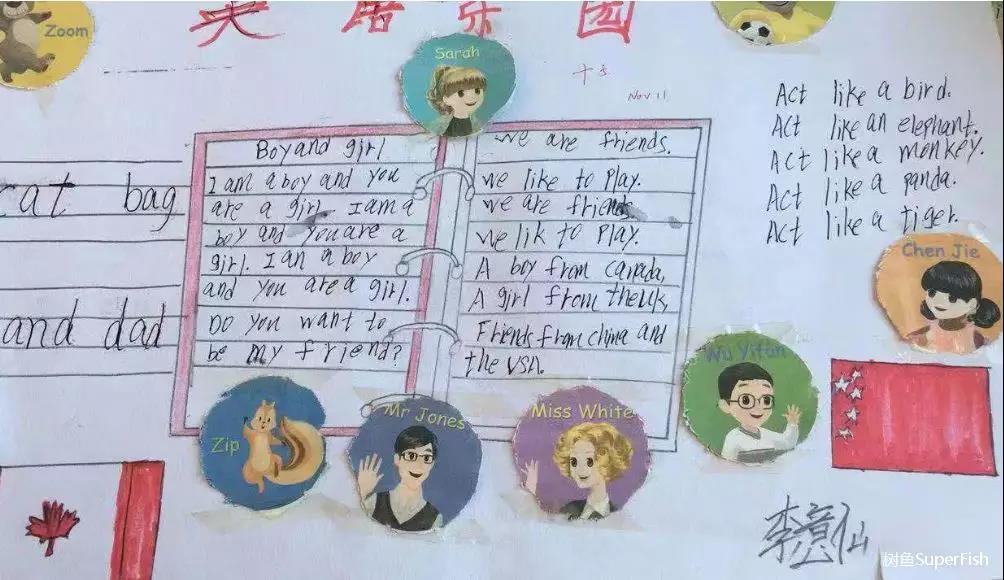 英语乐园
Zoom
Sarah
Nov 11
cat bag
and dad
Boy and girl
I am a boy and you
are a girl. I am a
boy and you are a
girl. I an a boy
and you are a girl.
Do you want to
be my friend?
We are friends.
we like to Play.
we are friends
we lik to Play.
A boy from canada,
A girl from the UK,
Friends from china and
the USA.
Act like a bird.
Act like an elephant.
Act like a monkey.
Act like a panda.
Act like a tiger.
Chen Jie
Wu Yifan
Zip
Mr Jones
Miss White
李意仙
树鱼SuperFish